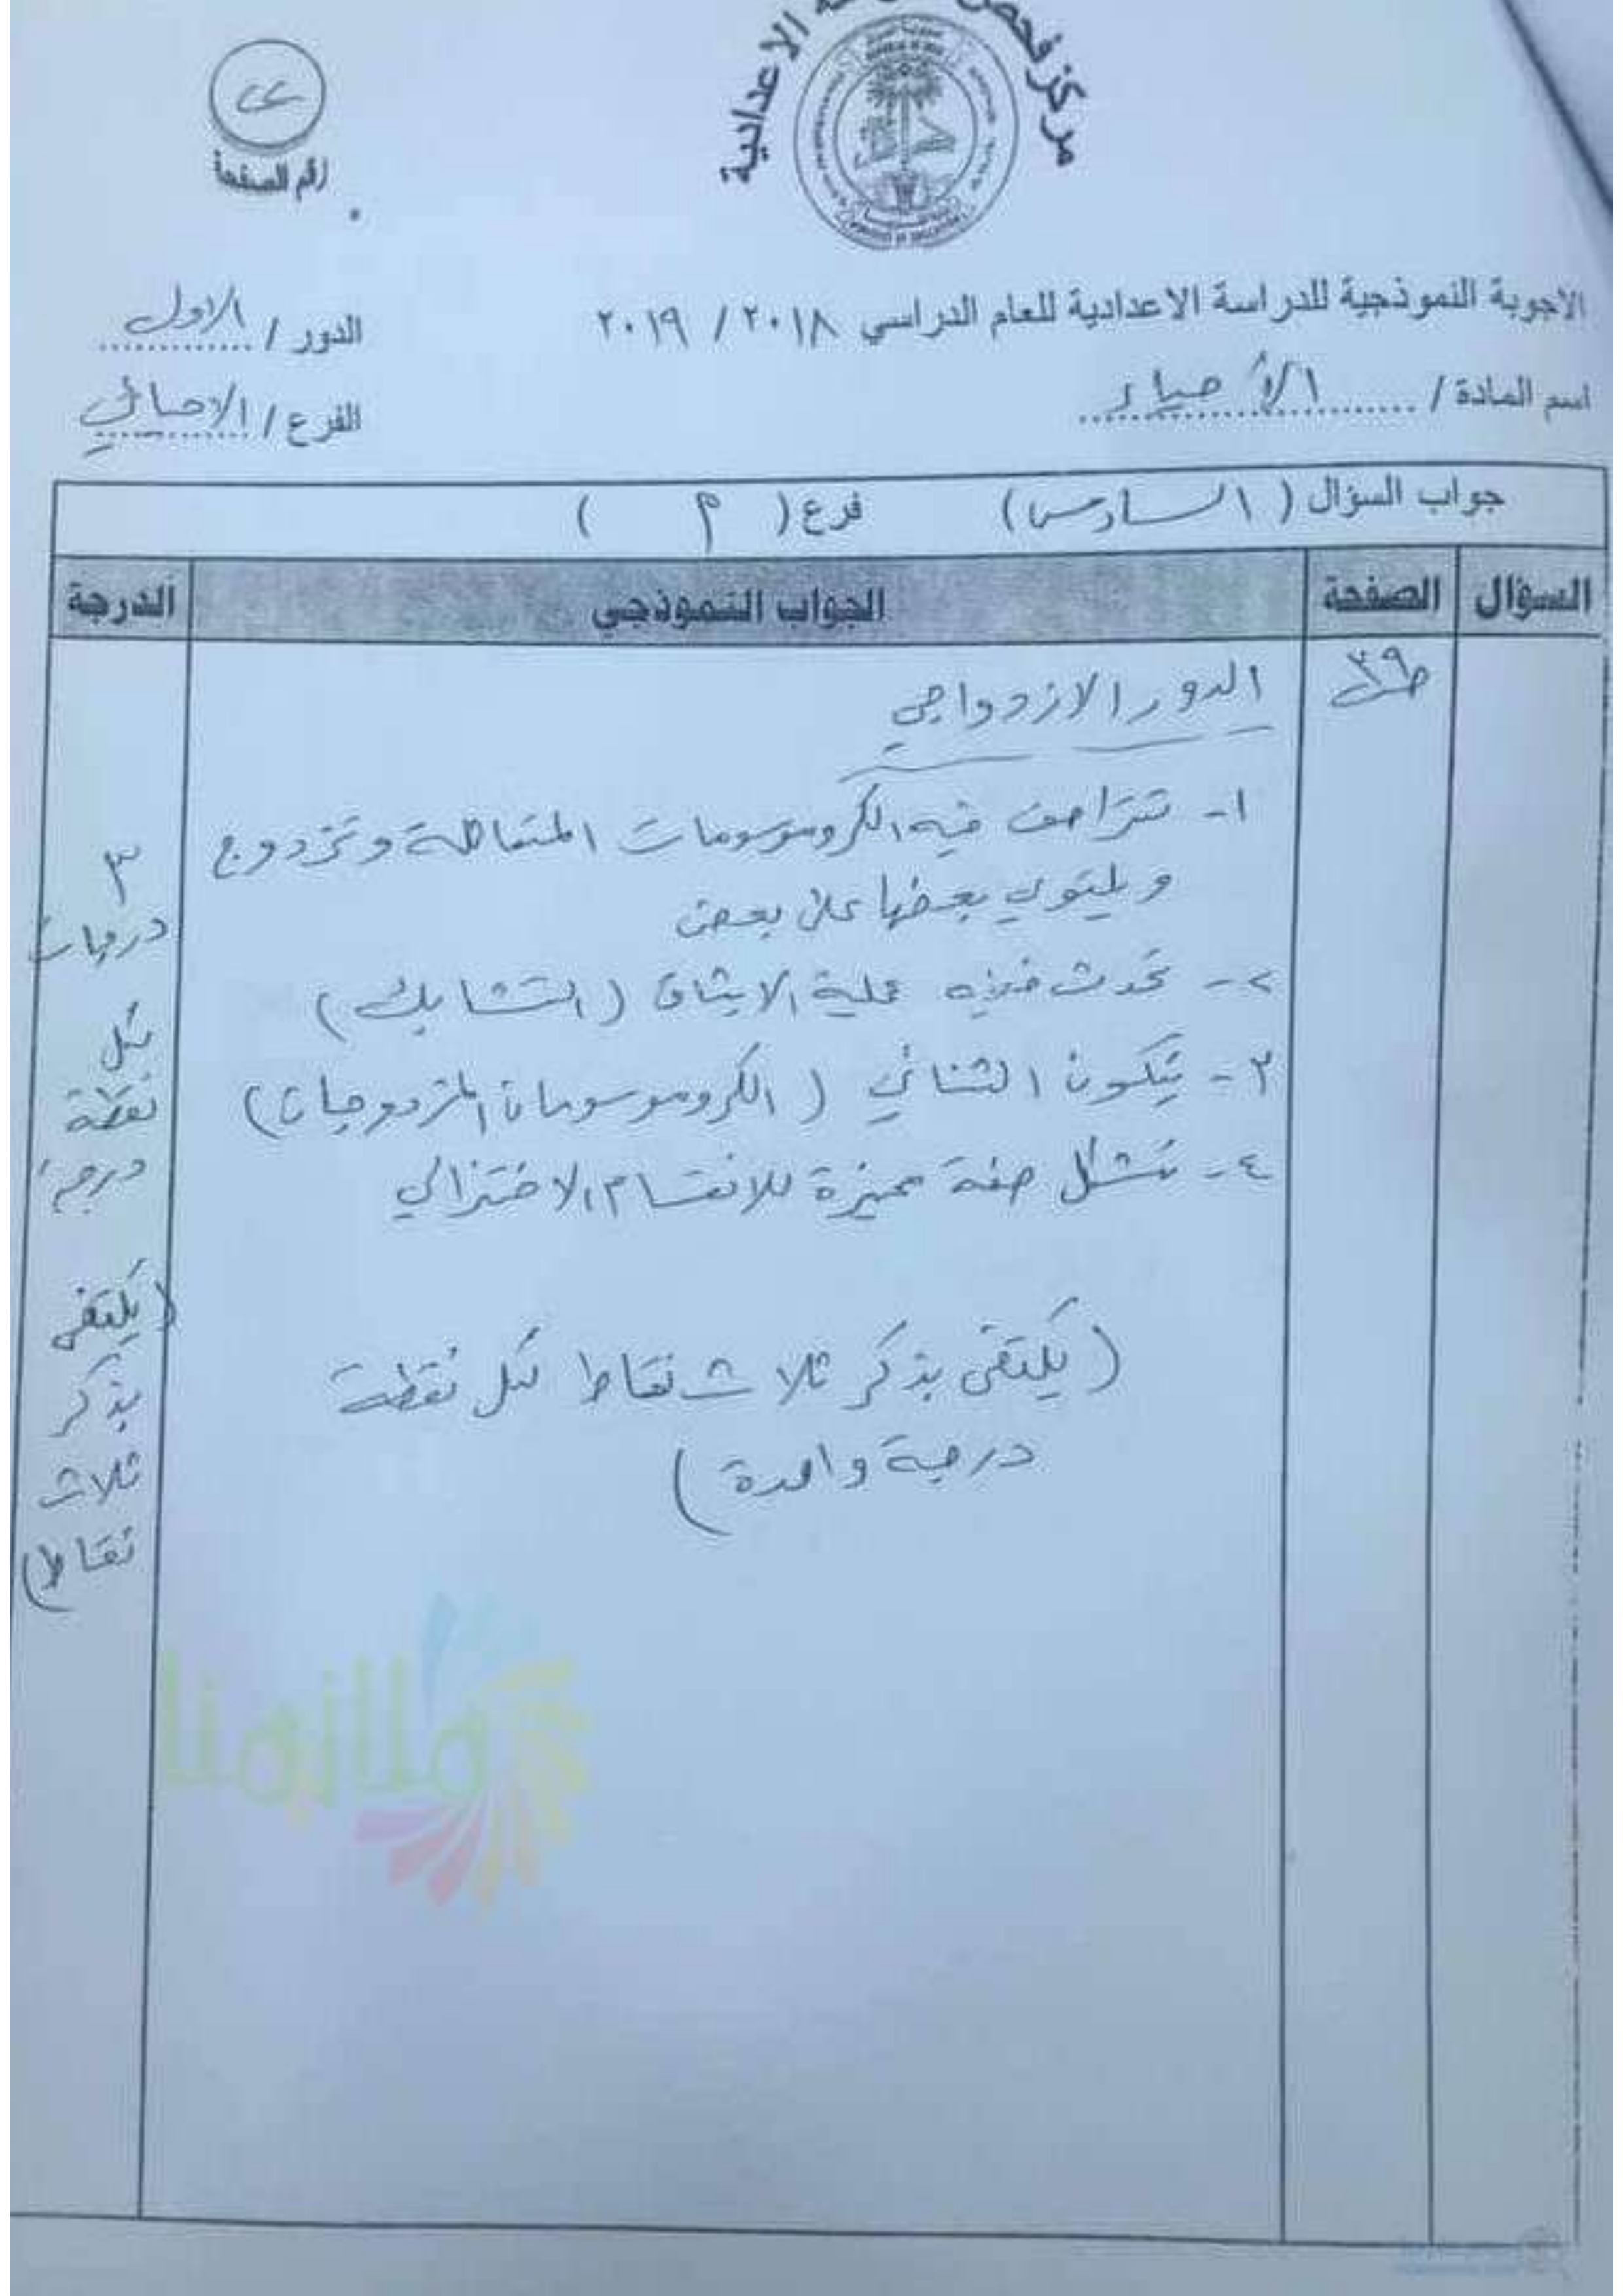 مركز فحص الاعدادية
٢٢
رقم الصفحة
الاجوبة النموذجية للدراسة الاعدادية للعام الدراسي ٢٠١٨ / ٢٠١٩
الدور / الاول
اسم المادة / الأحياء
الفرع / الاحيائي
جواب السؤال ( السادس ) فرع ( م )
السؤال الصفحة الجواب النموذجي الدرجة
ص٣٩
الدور الازدواجي
١- تتراصف فيه الكروموسومات المتماثلة وتزدوج
ويلتوي بعضها على بعض
٢- تحدث فيه عملية الايثاق (التشابك)
٣- يتكون الثنائي (الكروموسومان المزدوجان)
٤- تشكل صفة مميزة للانقسام الاختزالي
(يكتفى بذكر ثلاث نقاط لكل نقطة
درجة واحدة)
٣
درجات
لكل
نقطة
درجة
(يكتفى
بذكر
ثلاث
نقاط)
ملازمنا